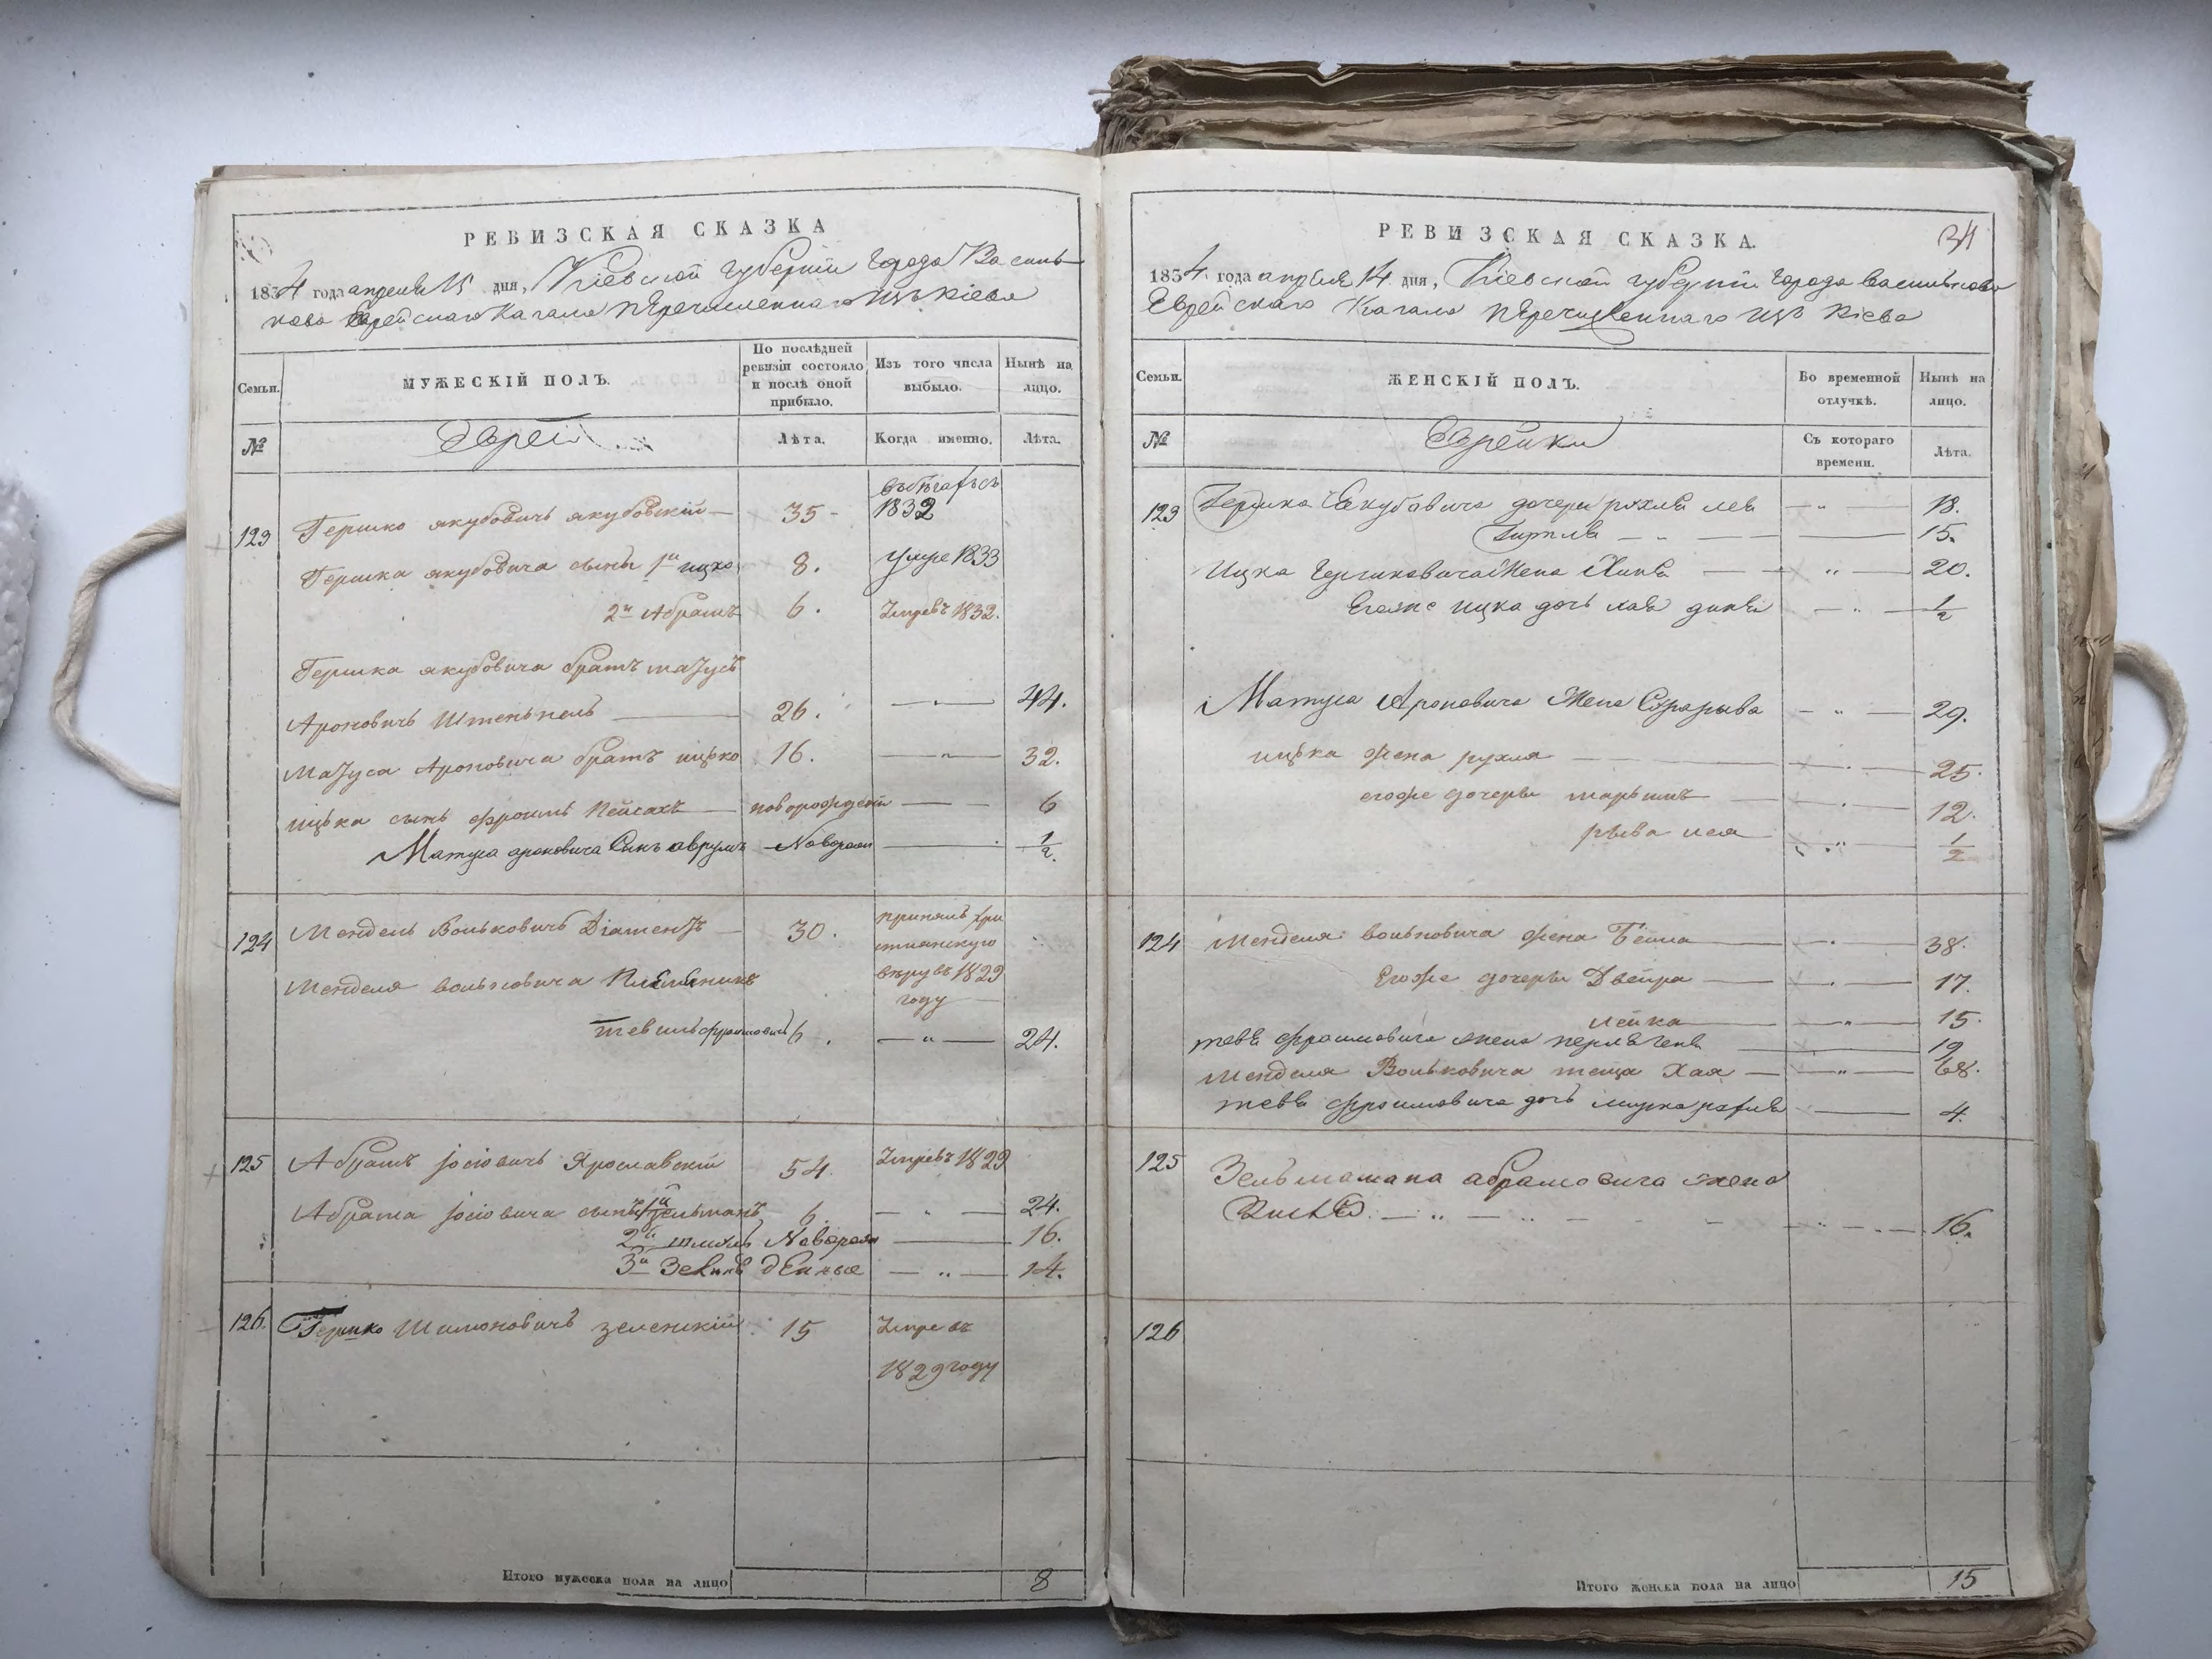 РЕВИЗСКАЯ СКАЗКА
1834 года апреля 15 дня, Кіевской губерніи города Василь
кова Еврейскаго Кагала перечисленнаго изъ Кіева
Семьи.
МУЖЕСКІЙ ПОЛЪ.
По послѣдней
ревизіи состояло
и послѣ оной
прибыло.
Изъ того числа
выбыло.
Нынѣ на
лицо.
№
Евреи
Лѣта.
Когда именно.
Лѣта.
123 Гершко якубовичъ якубовскій — 35 - 1832
Гершка якубовича сыны 1й ицко 8. умре 1833
2й Абрамъ 6. Умре въ 1832.
Гершка якубовича братъ матусъ
Ароновичъ Штенъпель — 26. — " — 44.
Матуса Ароновича братъ ицько 16. — " — 32.
ицька сынъ фроимъ Пейсахъ — новорожденый — 6
Матуса ароновича Синъ аврумъ — Новорож — 1/2.
124 Мендель Вольковичъ Діаментъ — 30. принялъ хри
стіанскую
веру въ 1829
году —
Менделя вольковича племеникъ
тевель фроимовичъ 6. — " — 24.
125 Абрамъ јосіовичъ Ярославскій 54. Умре въ 1829
Абрама јосіовича сынъ 1й зельманъ 6. — " — 24.
2й шмуль Новорож — 16.
3й Зейликъ денные — " — 14.
126. Гершко Шимоновичъ зеленскій 15 Умре въ
1829 году
Итого мужеска пола на лицо 8
РЕВИЗСКАЯ СКАЗКА.
34
1834 года апреля 14 дня, Кіевской губерніи города василькова
Еврейскаго Кагала перечисленнаго изъ Кіева
Семьи.
ЖЕНСКІЙ ПОЛЪ.
Во временной
отлучкѣ.
Нынѣ на
лицо.
№
Еврейки
Съ котораго
времени.
Лѣта.
123 Гершка Екубовича дочери рохля лея — " — 18.
— " — 15.
Ицка Гершковича жена Хиня — " — 20.
Егоже ицка дочь хая — " — 1/2
Матуса Ароновича Жена — " — 29.
ицька жена рухля — 25.
егоже дочери марьямъ — 12.
рыва лея — " — 1/2
124 Менделя вольковича жена Бейла — 38.
Егоже дочери Двейра — 17.
лейка — " — 15.
тевя фроимовича жена — 19
Менделя Вольковича теща Хая — " — 68.
тевя фроимовича дочь — 4.
125 Зельмамана абрамовича жена
— " — 16.
126
Итого женска пола на лицо 15